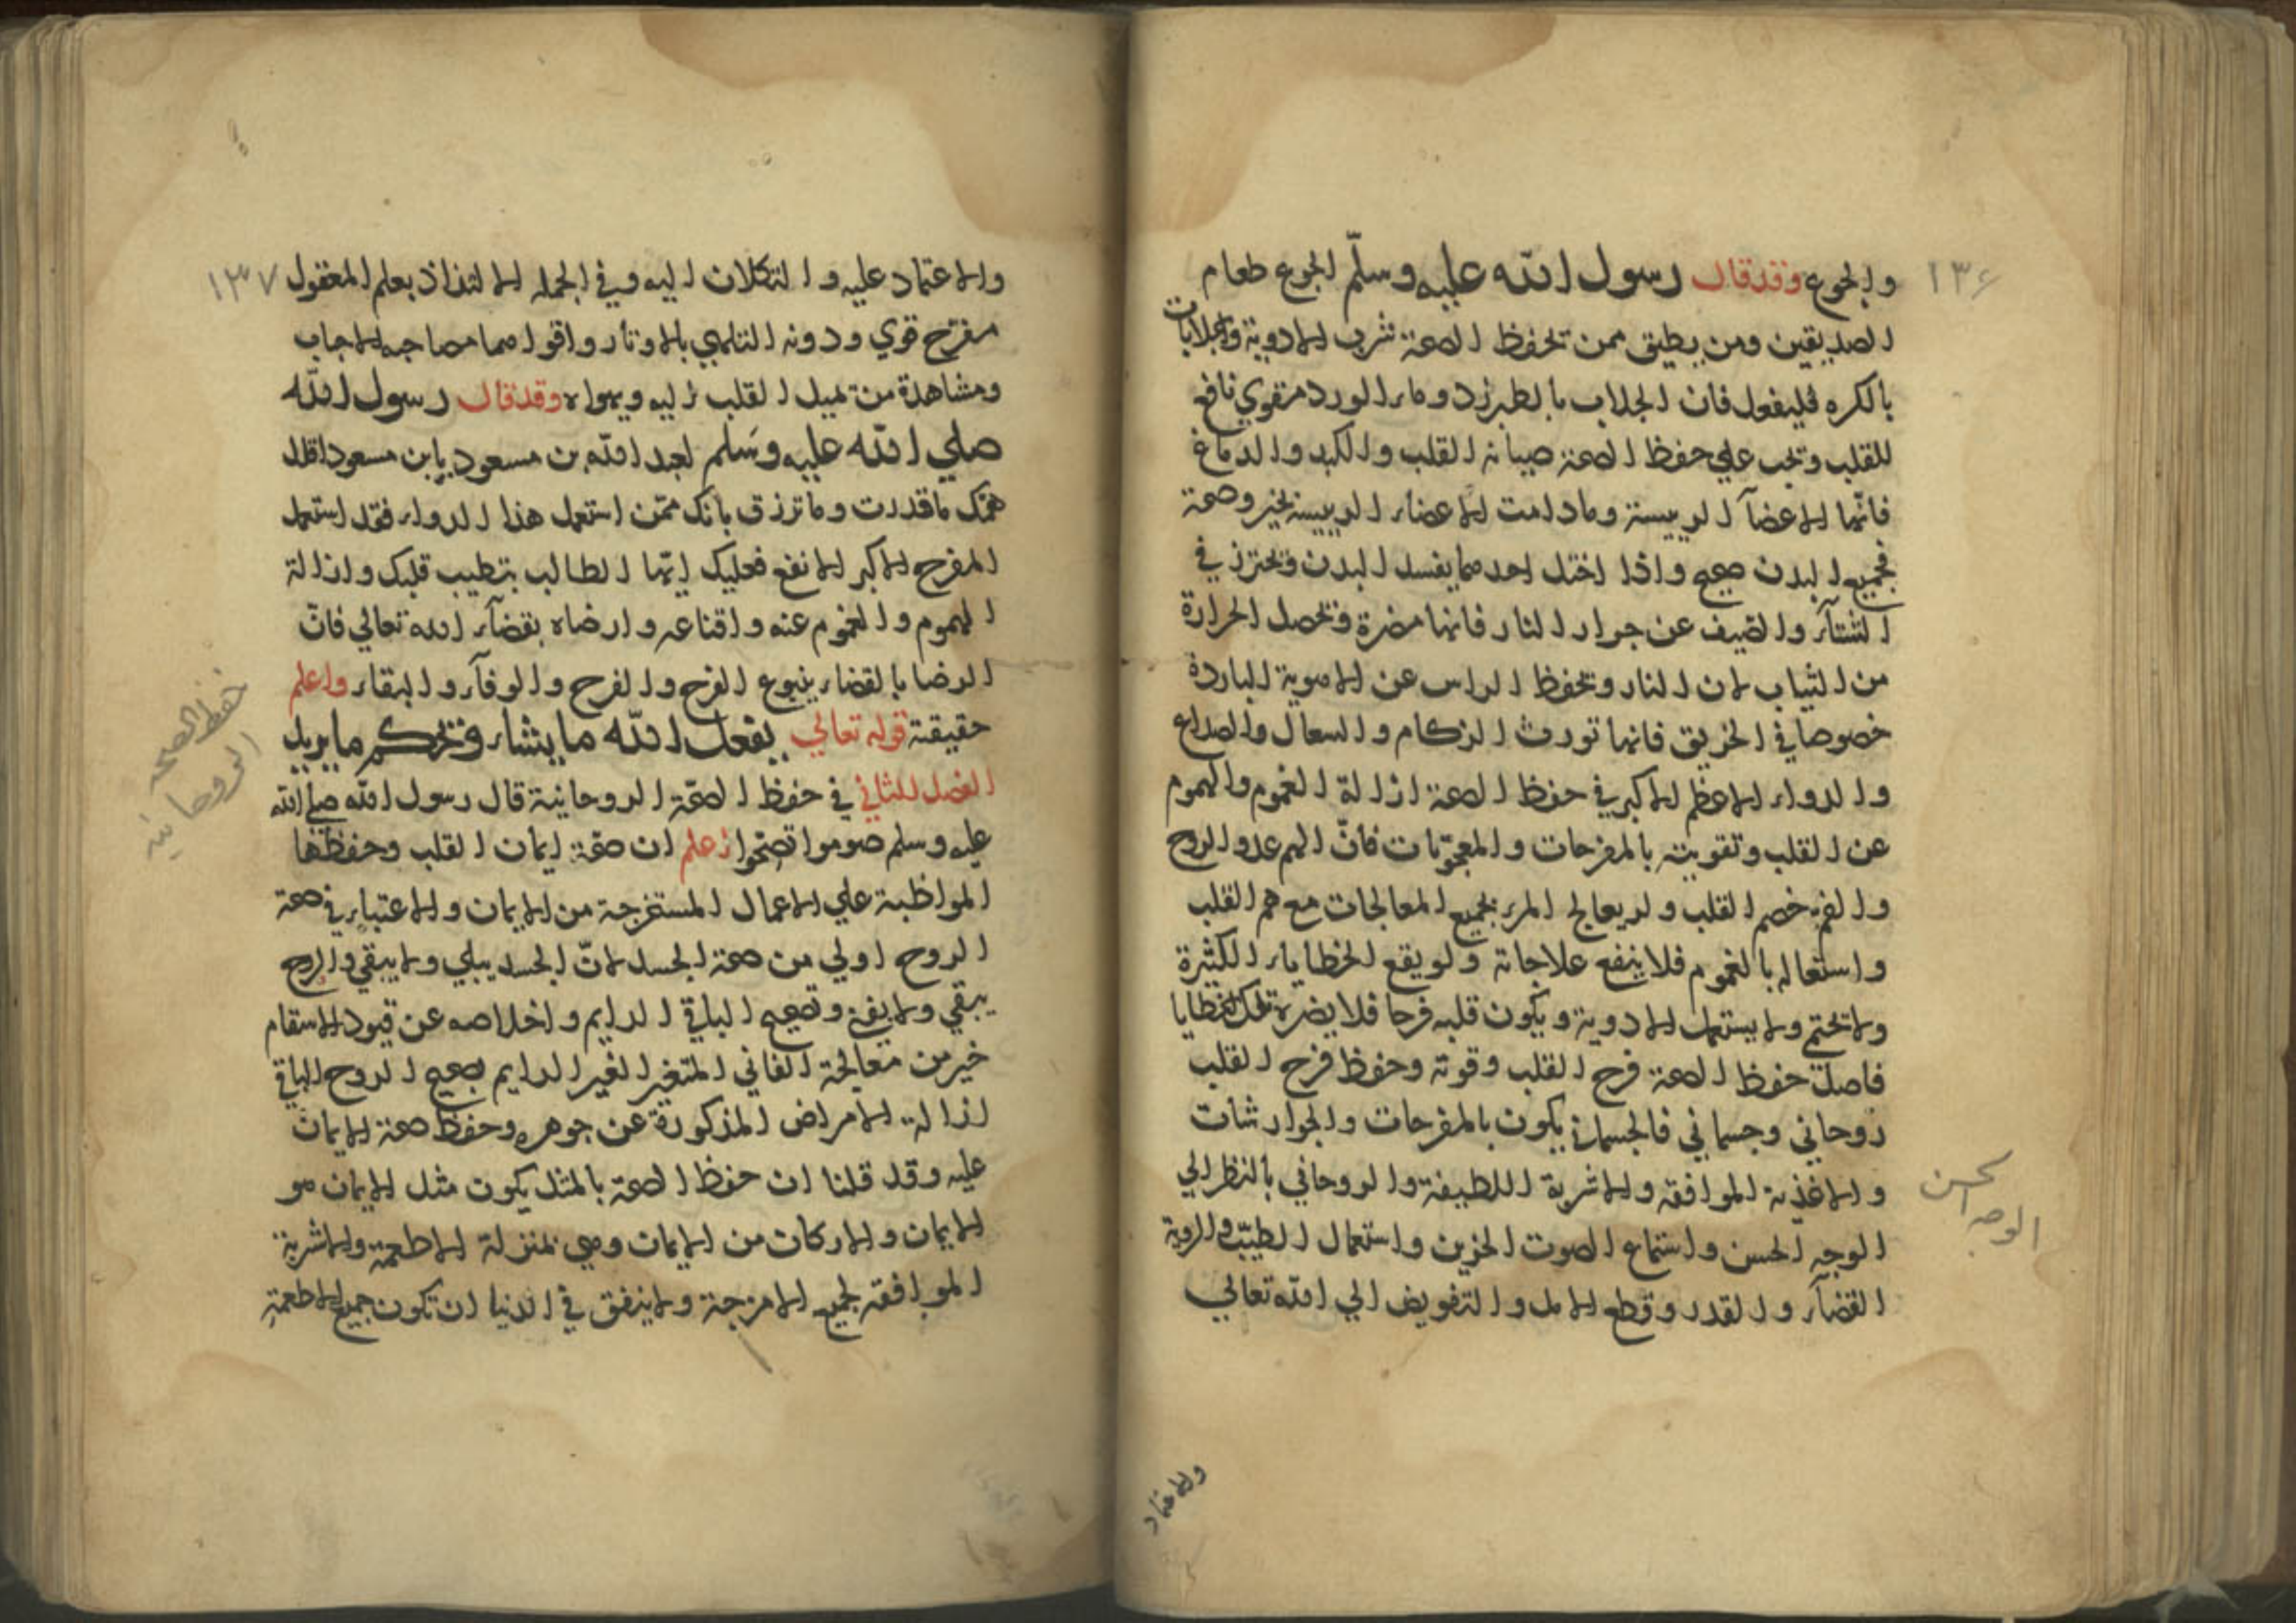 ١٣٦
والجوع وقد قال رسول الله عليه وسلّم الجوع طعام
الصديقين ومن يطيق ممن تحفظ الصحة شرب الادوية والجلابات
بالكره فليفعل فان الجلاب بالطبرزد وماء الورد مقوي نافع
للقلب وتجب علي حفظ الصحة صيانة القلب والكبد والدماغ
فانّها الاعضآ الرييسة ومادامت الاعضاء الرييسة بخير وصحة
فجميع البدن صحيح واذا اختل احدها يفسد البدن وتحترز في
الشتآء والصيف عن جوار النار فانها مضرة وتحصل الحرارة
من الثياب لان النار وتحفظ الراس عن الاهوية الباردة
خصوصا في الخريق فانها تورث الزكام والسعال والصداع
والدواء الاعظم الاكبر في حفظ الصحة ازالة الغموم والهموم
عن القلب وتقويته بالمفرحات والمعجونات فانّ الهم عدو الروح
والغم خصم القلب ولو يعالج المرء بجميع المعالجات مع هم القلب
واستعاله بالغموم فلا ينفع علاجاته ولو يقع الخطاياء الكثيرة
ولا تحتم ولا يستعمل الادوية ويكون قلبه فرحا فلا يضره تلك الخطايا
فاصلة حفظ الصحة فرح القلب وقوته وحفظ فرح القلب
روحاني وجسماني فالجسماني يكون بالمفرحات والجوارشات
والاغذية الموافقة والاشربة اللطيفة والروحاني بالنظر الي
الوجه الحسن واستماع الصوت الحزين واستعمال الطيّب والروية
القضآء والقدر وقطع الامل والتفويض الي الله تعالي
الوجه الحسن
والاعتماد
١٣٧
والاعتماد عليه والتكلان اليه وفي الجمله الالتذاذ بعلم المعقول
مفرح قوي ودونه التلهي بالاوتار واقواهما مصاحبه الاحباب
ومشاهدة من تميل القلب اليه ويهواه وقد قال رسول الله
صلي الله عليه وسلم لعبد الله بن مسعود يابن مسعود اقلل
همّك ما قدرت وما ترزق بانك ممّن استعمل هذا الدواء فقد استعمل
المفرح الاكبر الانفع فعليك ايّها الطالب بتطيب قلبك وازالة
الهموم والغموم عنه واقناعه وارضاه بقضآء الله تعالي فانّ
الرضا بالقضاء ينبوع الفرح والفرح والوفآء والبقاء واعلم
حقيقة قوله تعالي يفعل الله ما يشاء ويحكم ما يريد
الفصل الثاني في حفظ الصحّة الروحانية قال رسول الله صلي الله
عليه وسلم صوموا تصحّوا اعلم ان صحّة ايمان القلب وحفظها
المواظبة علي الاعمال المستخرجة من الايمان والاعتبار في صحة
الروح اولي من صحة الجسد لانّ الجسد يبلي ولا يبقي والروح
يبقي ولا يفني وتصحيح الباقي الدايم واخلاصه عن قيود الاسقام
خير من معالجة الفاني المتغير الغير الدايم بصحيح الروح الباقي
ازالة الامراض المذكورة عن جوهره وحفظ صحة الايمان
عليه وقد قلنا ان حفظ الصحة بالمثل يكون مثل الايمان هو
الايمان والاركان من الايمان وهي بمنزلة الاطعمة والاشربة
الموافقة لجميع الامزجة ولا ينفق في الدنيا ان تكون جميع الاطعمة
حفظ الصحه
الروحانيه